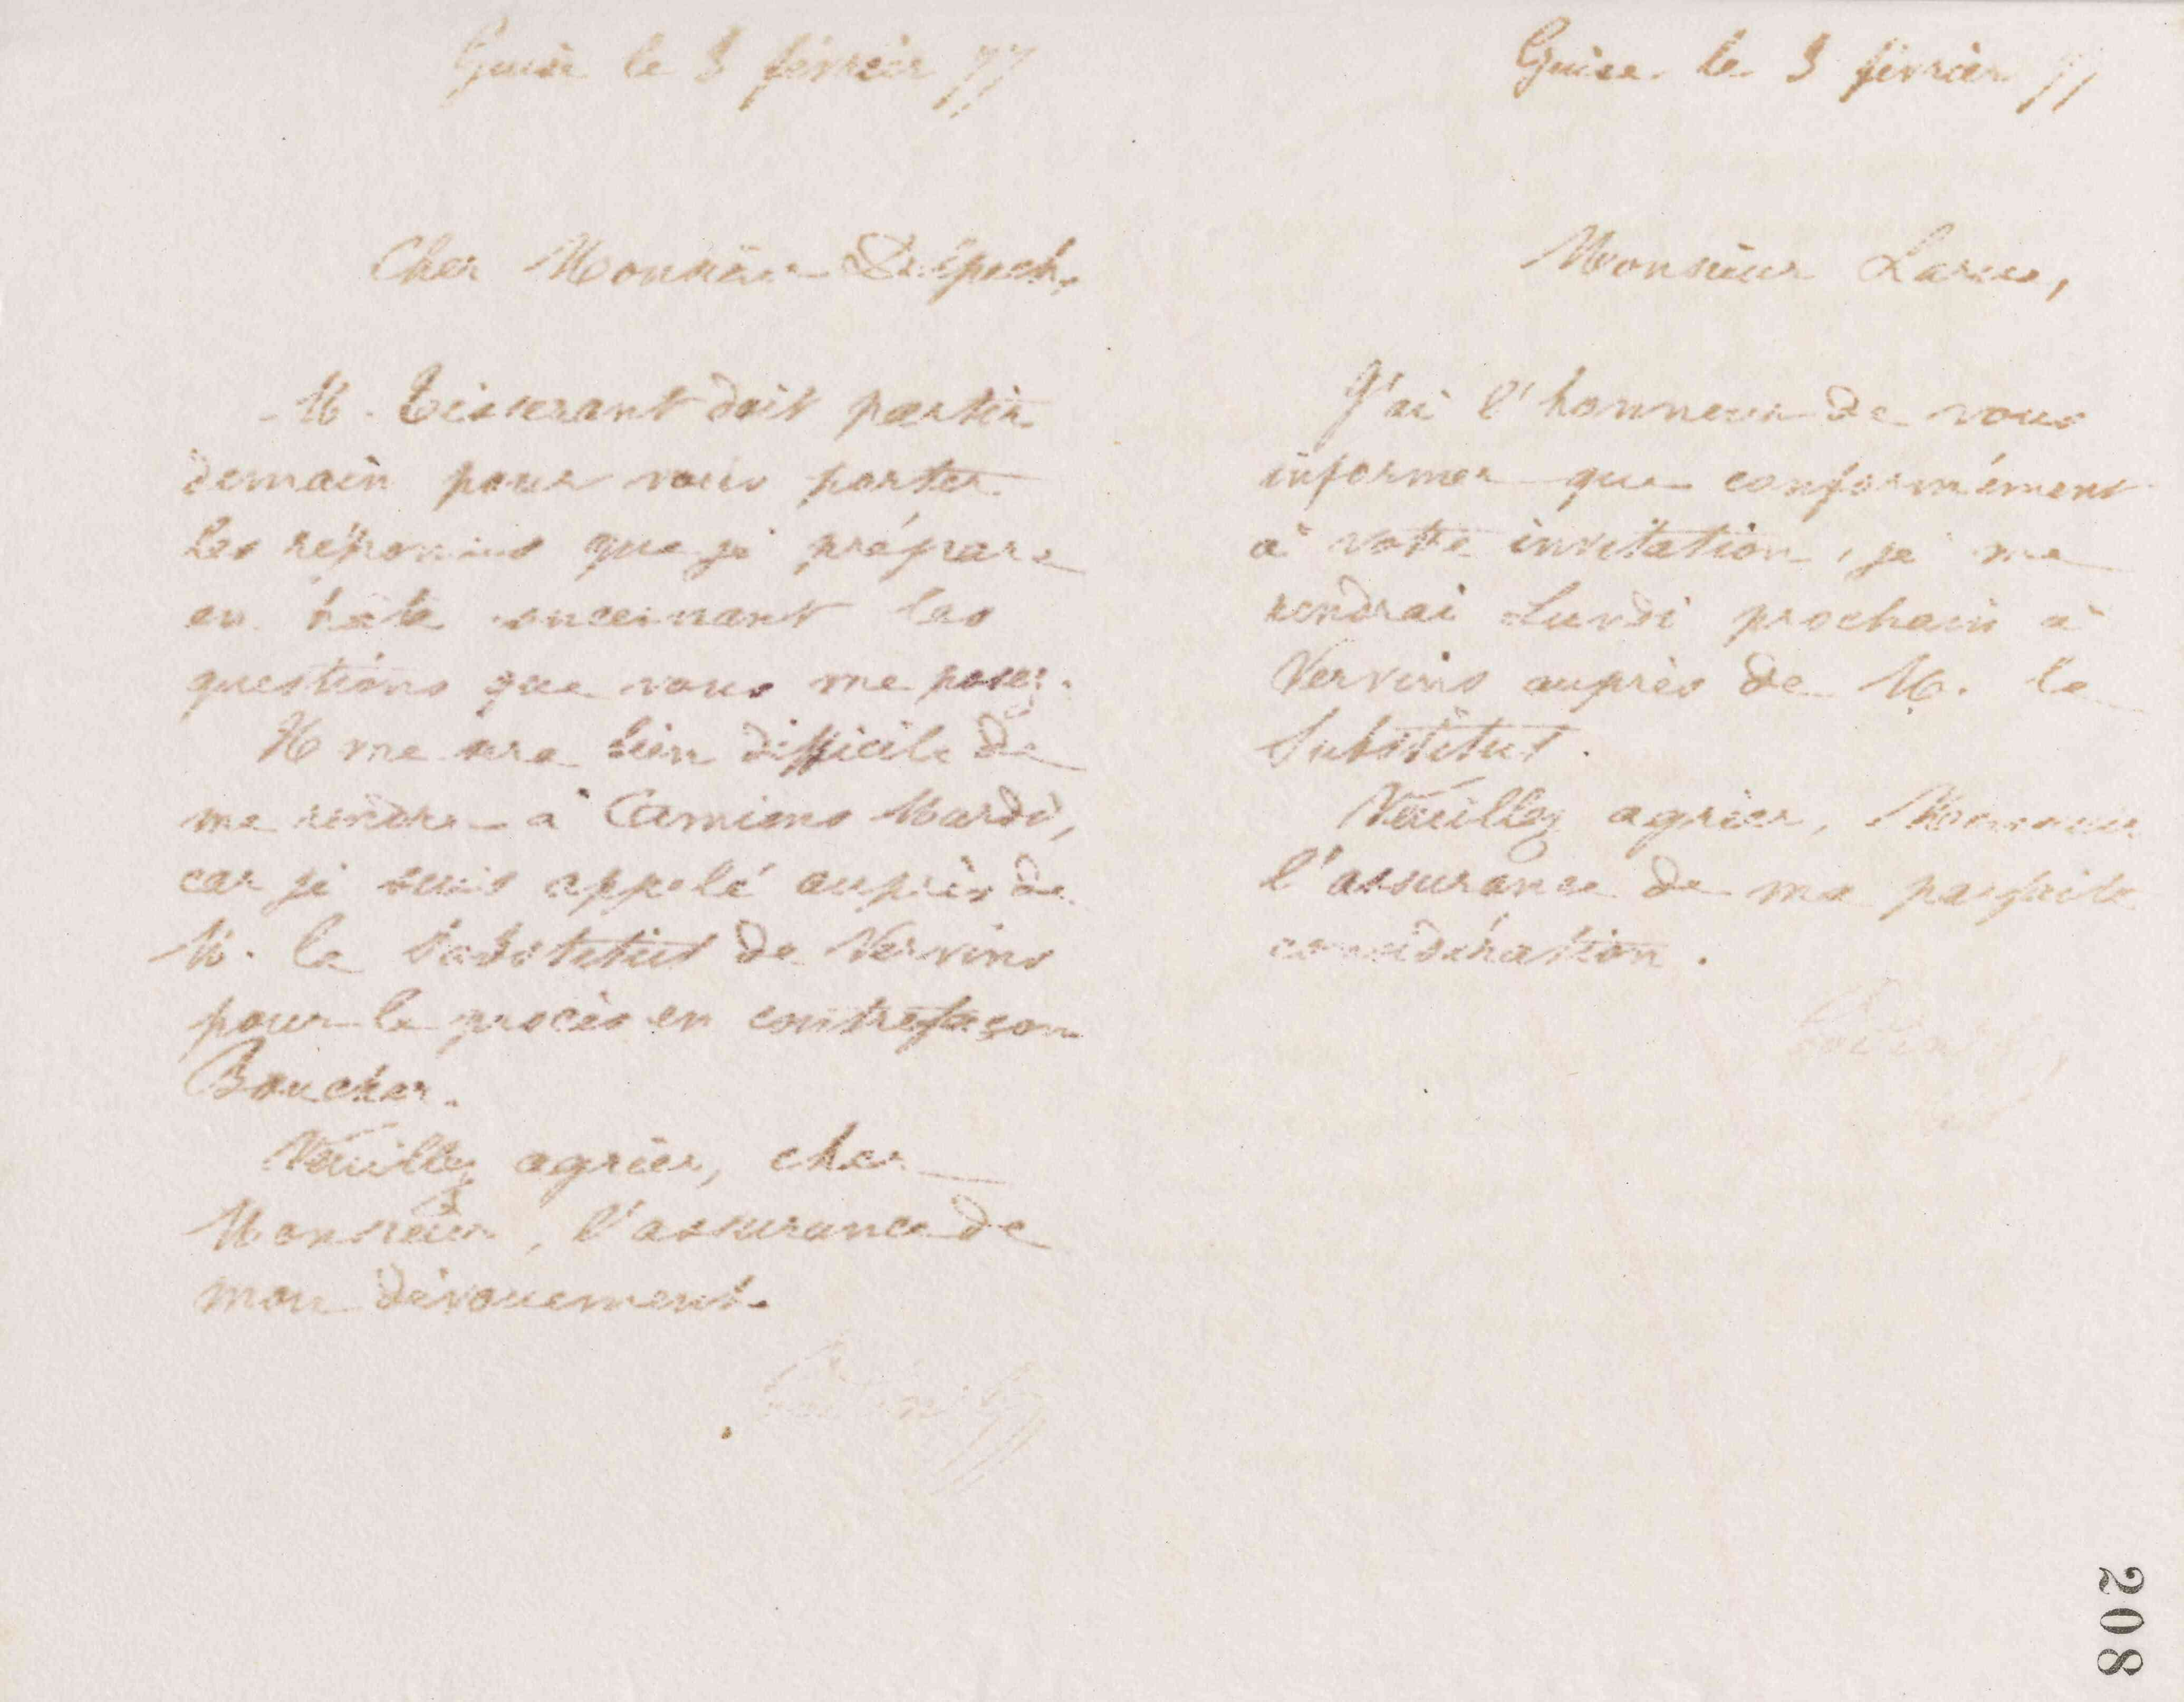 Guise le 3 février 77
Cher Monsieur Delpech,
M. Tisserant doit partir
demain pour vous porter
les réponses que je prépare
en hâte concernant les
questions que vous me posez.
Il me sera bien difficile de
me rendre à Amiens Mardi,
car je suis appelé auprès de
M. le Substitut de Vervins
pour le procès en contrefaçon
Boucher.
Veuillez agréer, cher
Monsieur, l'assurance de
mon dévouement.
Godin
Guise le 3 février 77
Monsieur
J'ai l'honneur de vous
informer que conformément
à votre invitation, je me
rendrai Lundi prochain à
Vervins auprès de M. le
Substitut.
Veuillez agréer, Monsieur
l'assurance de ma parfaite
considération.
Godin
208